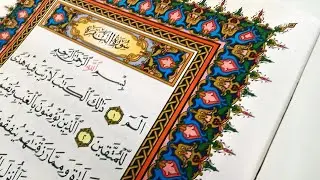 سُورَةُ الْبَقَرَةِ
بِسْمِ ٱللَّهِ ٱلرَّحْمَٰنِ ٱلرَّحِيمِ
الٓمٓ ١ ذَٰلِكَ ٱلْكِتَٰبُ لَا رَيْبَ فِيهِ هُدًى
لِّلْمُتَّقِينَ ٢ ٱلَّذِينَ يُؤْمِنُونَ بِٱلْغَيْبِ وَيُقِيمُ
وَمِمَّا رَزَقْنَٰهُمْ يُنفِقُ
أُنزِلَ